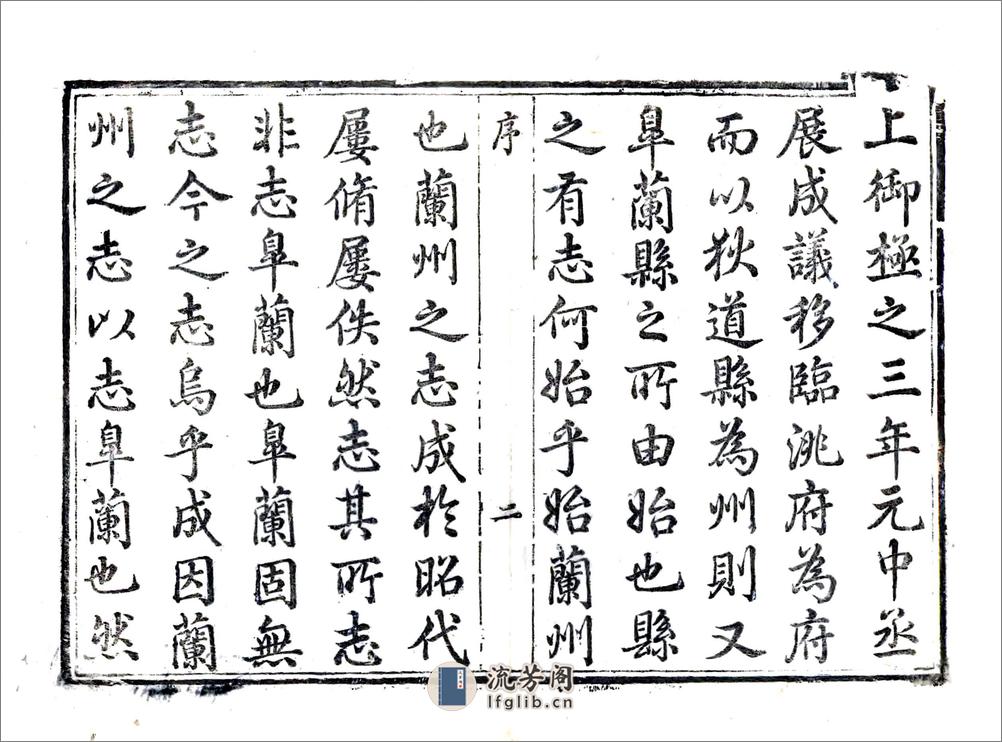 上御極之三年元中丞
展成議移臨洮府為府
而以狄道縣為州則又
臯蘭縣之所由始也縣
之有志何始乎始蘭州
序
二
也蘭州之志成於昭代
屢脩屢佚然志其所志
非志臯蘭也臯蘭固無
志今之志烏乎成因蘭
州之志以志臯蘭也然
流芳阁
lfglib.cn